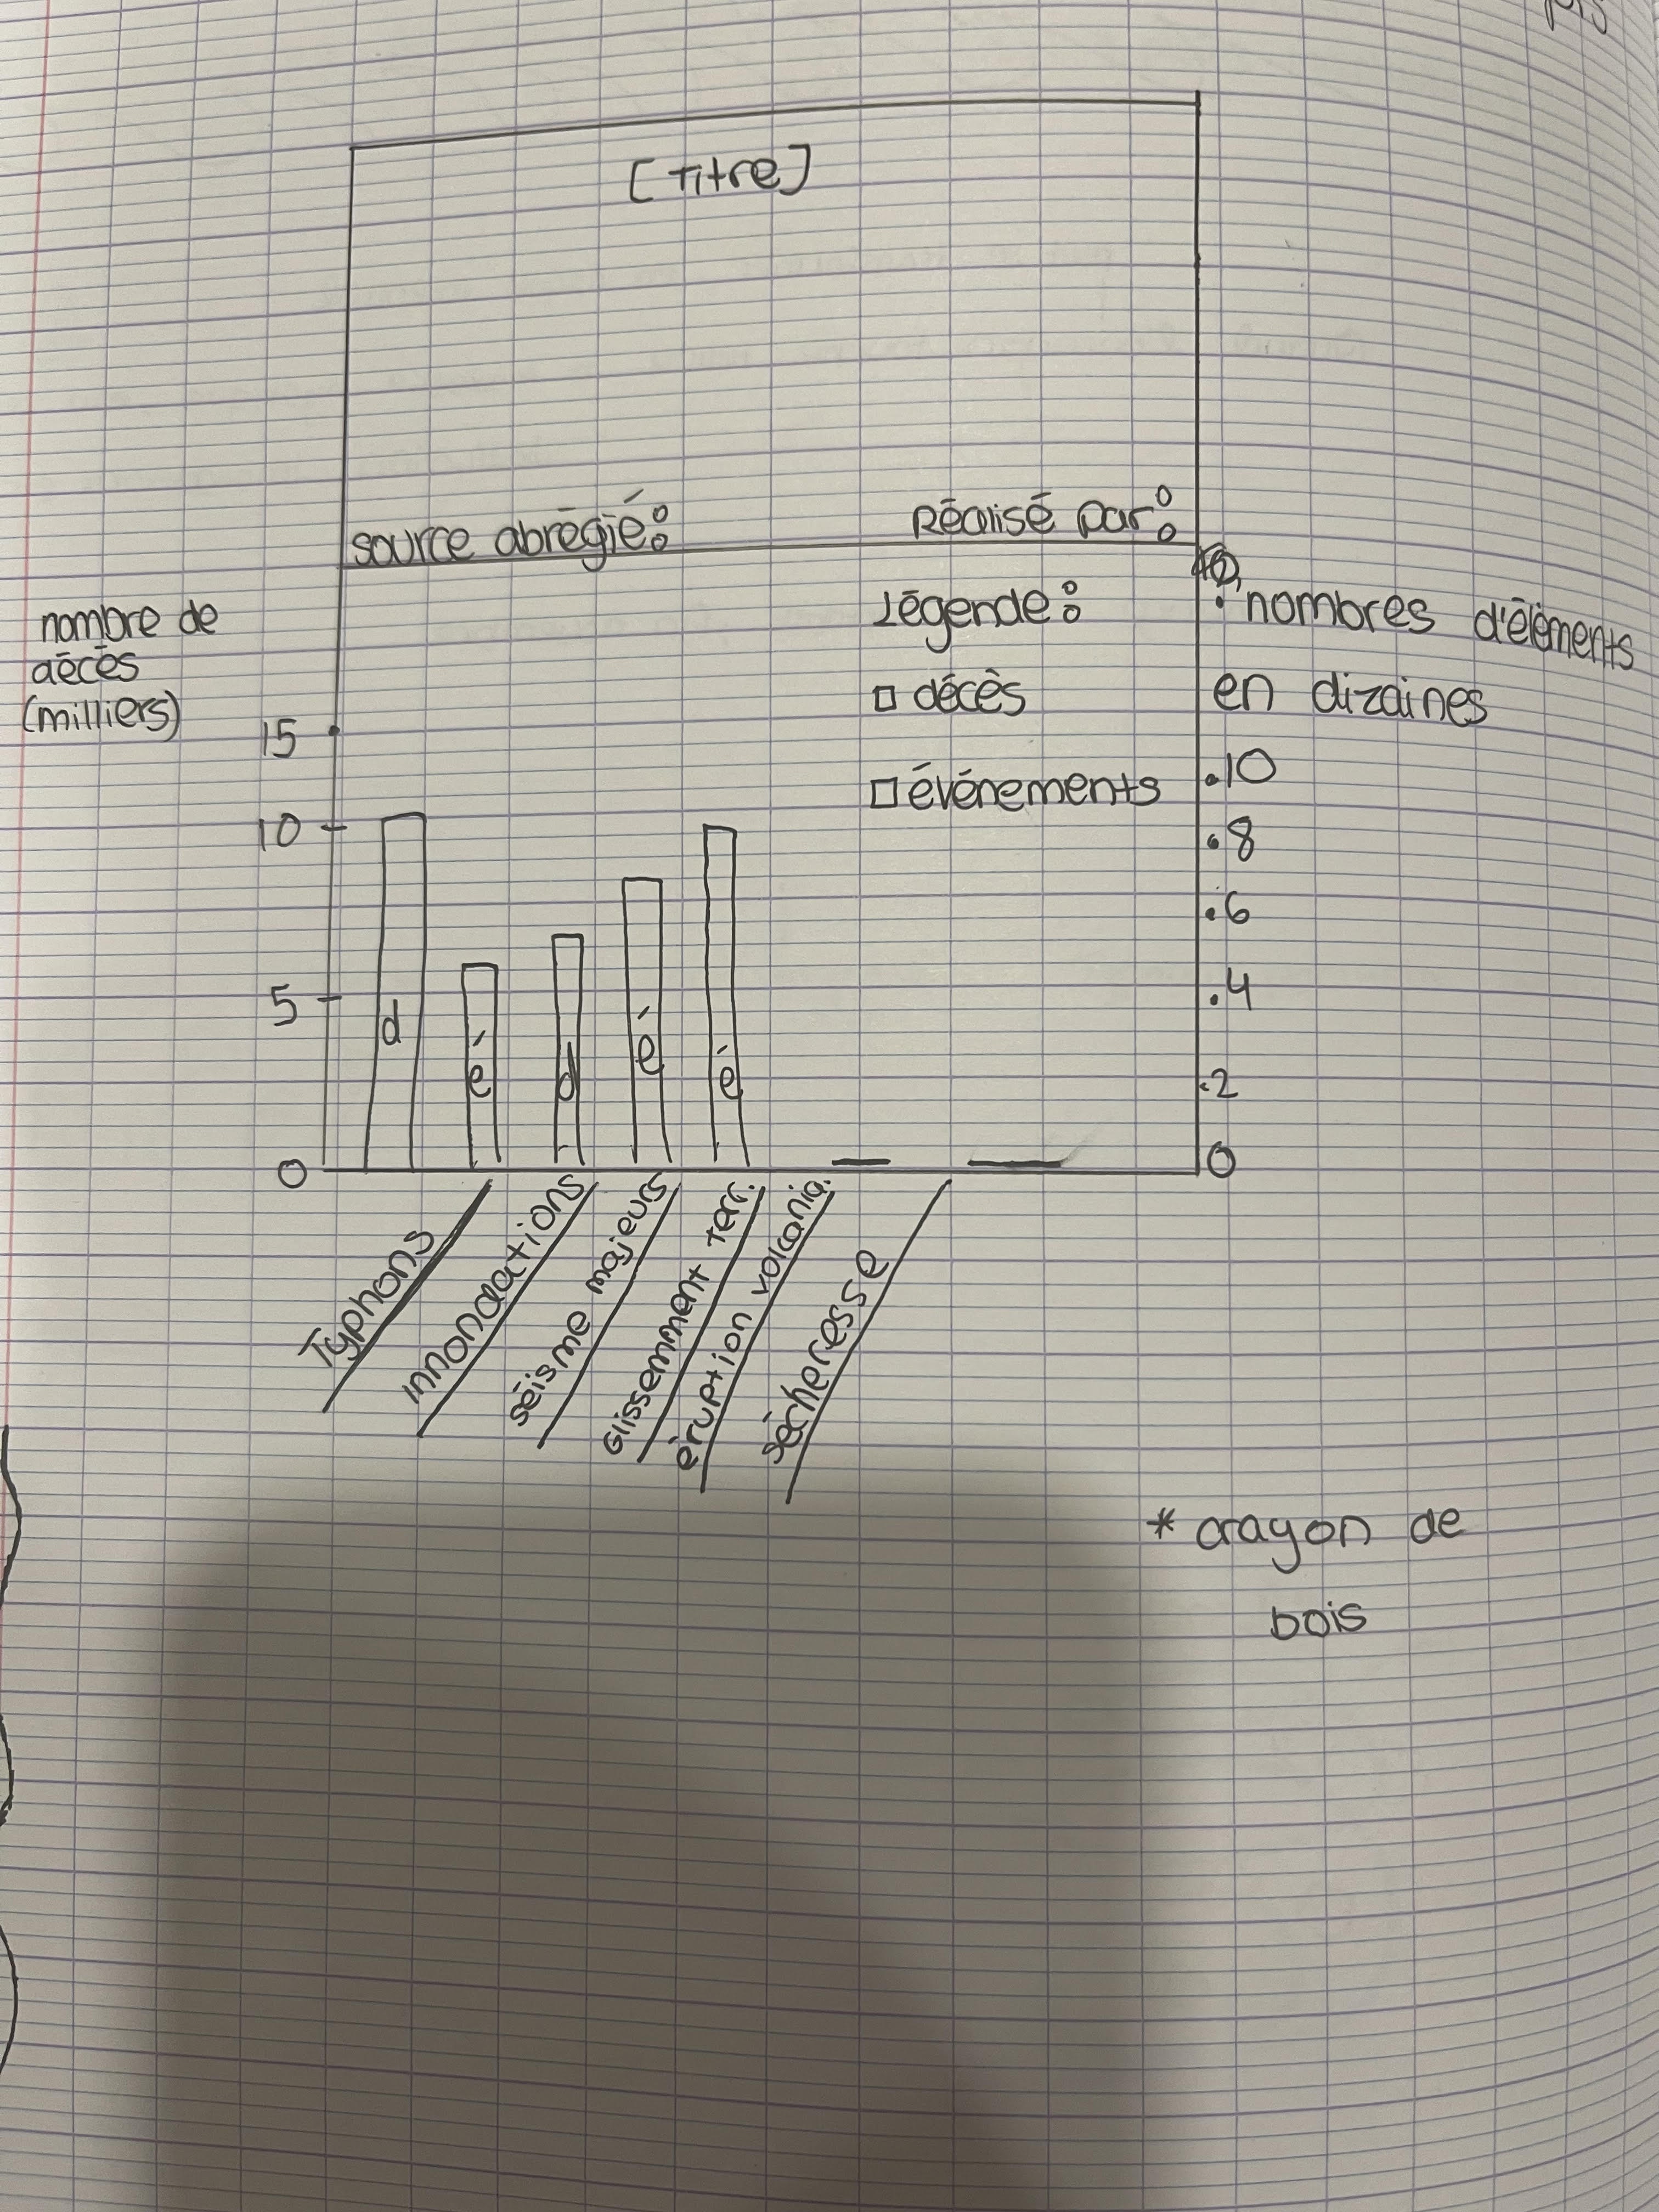 [Titre]
source abrégié:
Réalisé par:
nombre de
décès
(milliers)
Légende:
□ décès
□ événements
nombres d'éléments
en dizaines
15
10
5
0
10
8
6
4
2
0
d
é
d
é
é
Typhons
innondactions
séisme majeurs
Glissemment terr.
éruption volcaniq.
sécheresse
* crayon de
bois